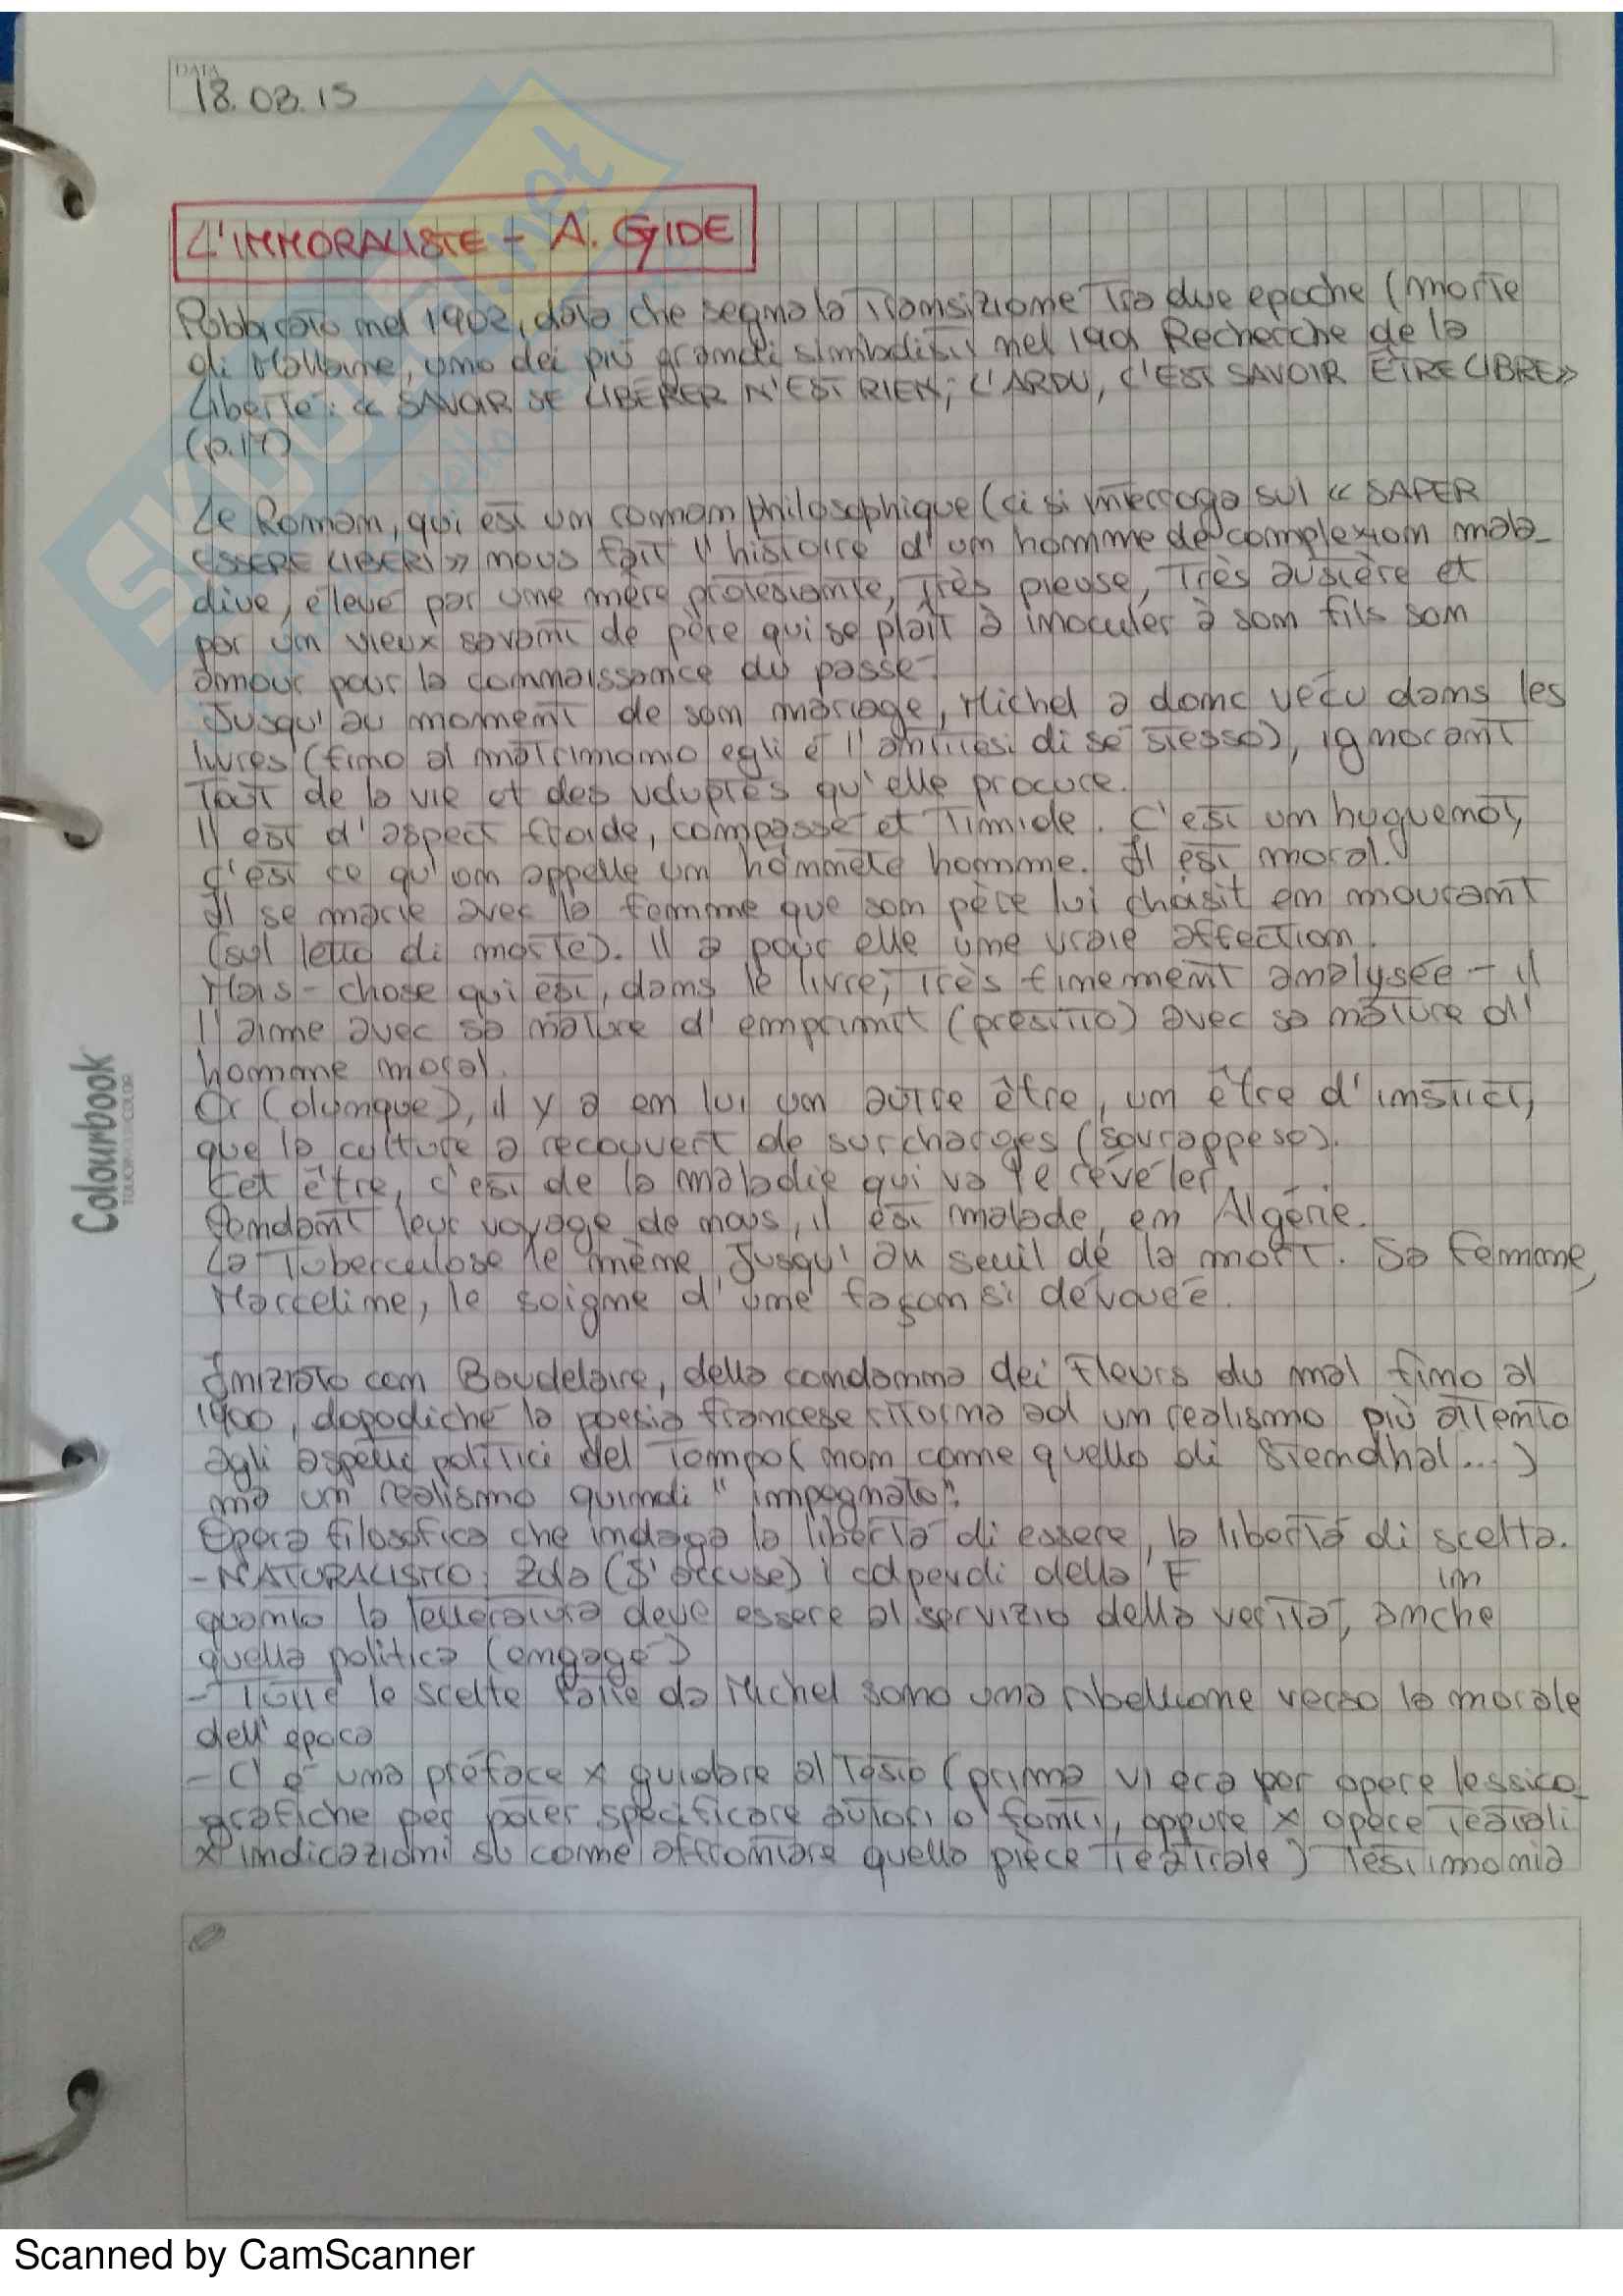 DATA
18.03.15
L'IMMORALISTE - A. GIDE
Pubblicato nel 1902, data che segna la transizione tra due epoche (morte
di Mallarme, uno dei più grandi simbolisti nel 1901 Recherche de la
Liberté: « SAVOIR SE LIBÉRER N'EST RIEN; L'ARDU, C'EST SAVOIR ÊTRE LIBRE»
(p.17)
Le Roman, qui est un roman philosophique (ci si interroga sul « SAPER
ESSERE LIBERI» nous fait l'histoire d'un homme de complexion mala-
dive, élevé par une mère protestante, très pieuse, très austère et
par un vieux savant de père qui se plaît à inoculer à son fils son
amour pour la connaissance du passé.
Jusqu'au moment de son mariage, Michel a donc vécu dans les
livres (fino al matrimonio egli é l'antitesi di sé stesso), ignorant
tout de la vie et des voluptés qu'elle procure.
Il est d'aspect froide, compassé et timide. C'est un huguenot,
c'est ce qu'on appelle un honnête homme. Il est moral.
Il se marie avec la femme que son père lui choisit en mourant
(sul letto di morte). Il a pour elle une vraie affection.
Mais - chose qui est, dans le livre, très finement analysée - il
l'aime avec sa nature d'emprunt (prestito) avec sa nature d'
homme moral.
Or (dunque), il y a en lui un autre être, un être d'instict,
que la culture a recouvert de surcharges (sovrappeso).
Cet être, c'est de la maladie qui va le révéler.
Pendant leur voyage de nous, il est malade, en Algérie.
La Tuberculose le mène jusqu'au seuil de la mort. Sa femme,
Marceline, le soigne d'une façon si dévouée.
Iniziato con Baudelaire, della condanna dei Fleurs du mal fino al
1900, dopodiché la poesia francese ritorna ad un realismo più attento
agli aspetti politici del Tempo (non come quello di Stendhal...)
ma un realismo quindi "impegnato".
Opera filosofica che indaga la libertà di essere, la libertà di scelta.
- NATURALISTICO: Zola (J'accuse) i colpevoli della F in
quanto la letteratura deve essere al servizio della verità, anche
quella politica (engagé)
- Tutte le scelte fatte da Michel sono una ribellione verso la morale
dell'epoca
- C'é una préface x guidare al Testo (prima vi era per opere lessico-
grafiche per poter specificare autori o fonti, oppure x opere teatrali
x indicazioni su come affrontare quella pièce teatrale) Testimonia
Colourbook
SKUOLA.net
Scanned by CamScanner